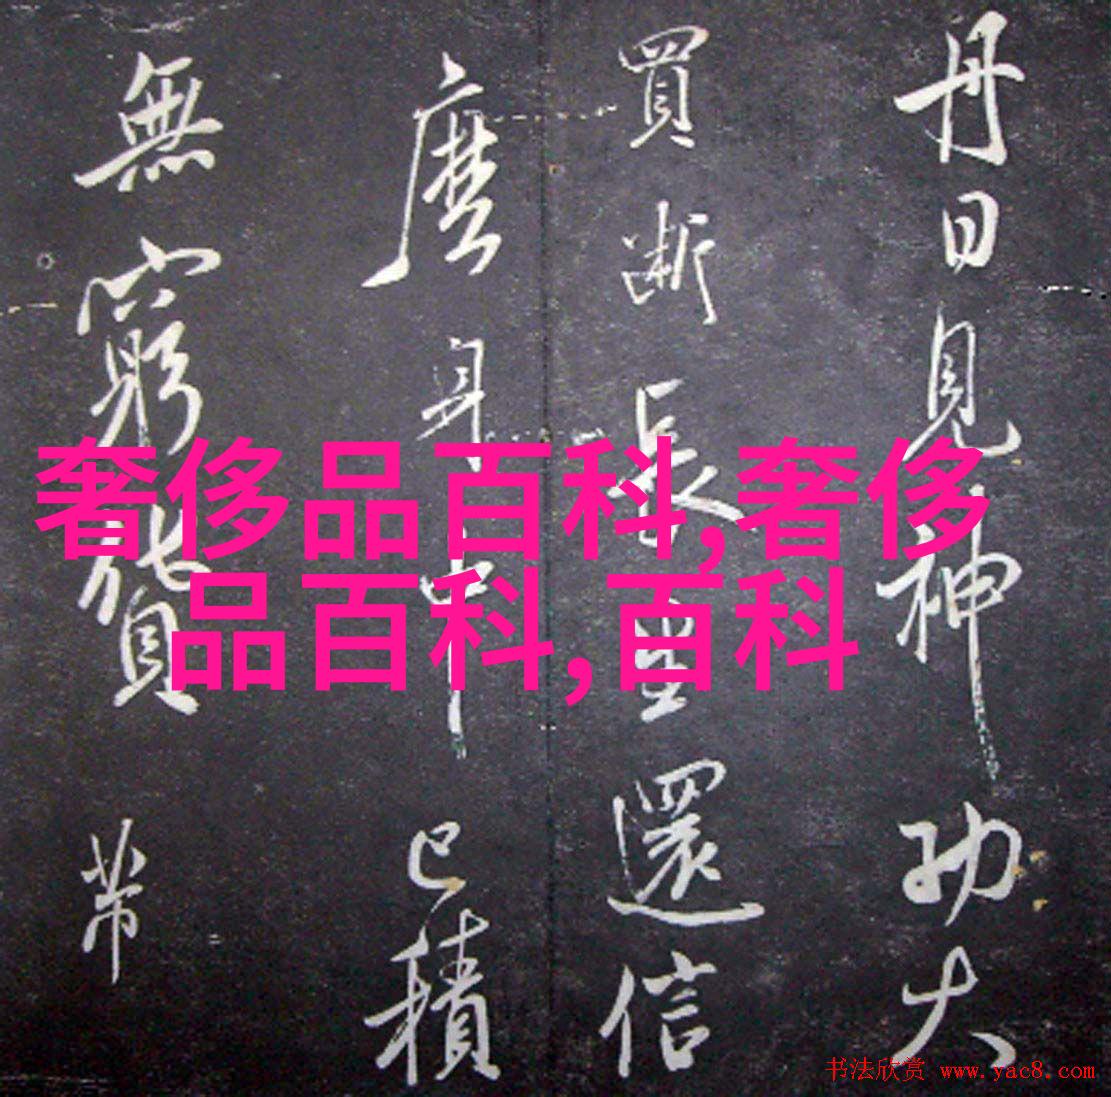 丹日見神功大
買斷長生還信
麼身中已積
無窮貨帶
奢侈品百科,奢侈
品百科,百科
书法欣赏 www.yac8.com